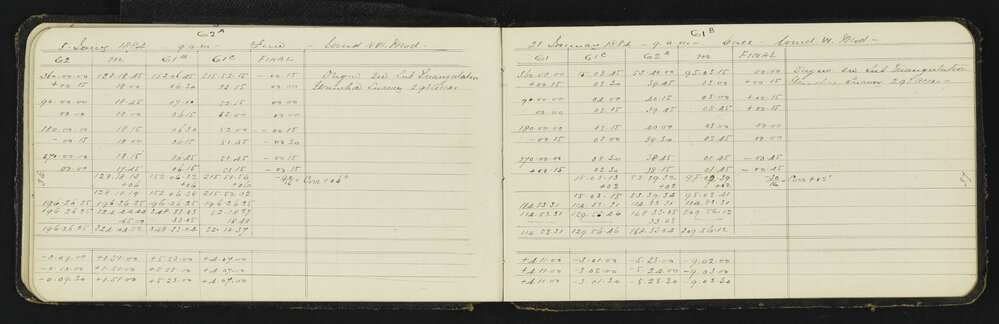 62A
5 Jany 1884 - 9 a.m - Fine - Wind N.W. Mod -
62 M 61B 61C FINAL
360.00.00 128.18.45 152.06.45 215.52.15 - 00.15
+ 00.15 18.00 06.30 52.15 00.00
90.00.00 18.45 07.00 52.15 00.00
00.00 18.00 06.15 52.00 00.00
180.00.00 18.15 06.30 52.00 - 00.15
- 00.15 18.00 06.15 51.45 - 00.30
270.00.00 18.15 06.45 51.45 - 00.15
00.00 17.45 06.15 51.15 - 00.15
128.18.13 152.06.32 215.51.56 Corr + 06"
+06 +06 +06
128.18.19 152.06.38 215.52.02
196.26.25 196.26.25 196.26.25 196.26.25
196.26.25 324.44.44 348.33.03 52.18.27
45.00 33.05 18.48
196.26.25 324.44.52 348.33.04 52.18.37
-0.09.00 +1.51.00 +5.23.00 +4.07.00
-0.10.00 +1.51.00 +5.23.00 +4.07.00
-0.09.30 +1.51.00 +5.23.00 +4.07.00
61B
21 January 1884 - 9 a.m - - Wind W. Mod -
61 61C 62A M FINAL
360.00.00 15.03.45 53.40.00 95.03.15 00.00
+ 00.15 03.30 39.45 03.00 + 00.15
90.00.00 04.00 40.15 03.00 + 00.15
00.00 03.15 39.45 02.45 + 00.15
180.00.00 03.15 40.00 03.00 00.00
- 00.15 03.00 39.30 02.45 00.00
270.00.00 02.30 38.45 01.45 - 00.45
+ 00.15 02.30 38.15 01.45 - 00.45
15.03.13 53.39.32 95.02.39 Corr + 2"
+02 +02 +02
15.03.15 53.39.34 95.02.41
114.53.31 114.53.31 114.53.31 114.53.31
114.53.31 129.56.46 168.33.05 209.56.12
33.03
114.53.31 129.56.46 168.33.04 209.56.12
+4.11.00 -3.01.00 -5.23.00 -9.02.00
+4.11.00 -3.02.00 -5.24.00 -9.03.00
+4.11.00 -3.01.30 -5.23.30 -9.02.30